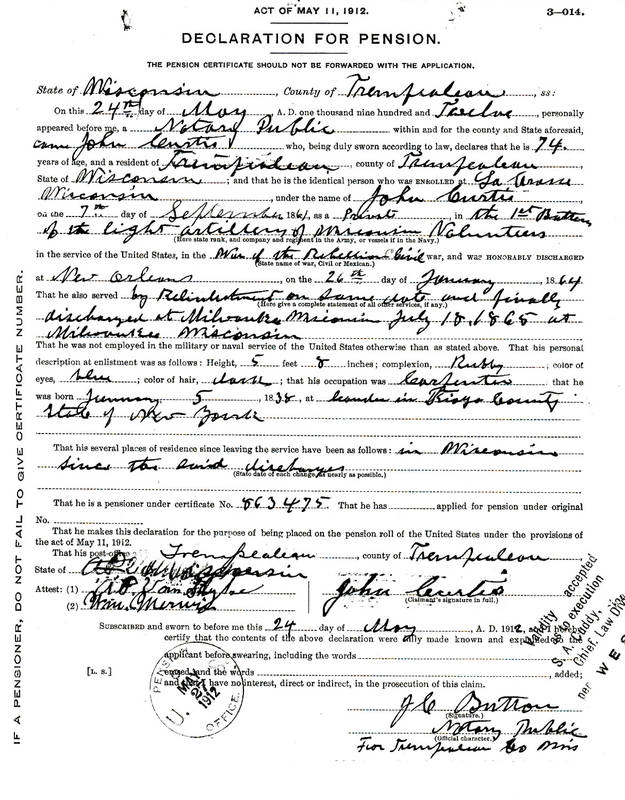 ACT OF MAY 11, 1912.
3—014.
DECLARATION FOR PENSION.
THE PENSION CERTIFICATE SHOULD NOT BE FORWARDED WITH THE APPLICATION.
State of Wisconsin, County of Trempealeau, ss:
On this 24th day of May, A. D. one thousand nine hundred and Twelve, personally
appeared before me, a Notary Public within and for the county and State aforesaid,
came John Curtis who, being duly sworn according to law, declares that he is 74.
years of age, and a resident of Trempealeau county of Trempealeau
State of Wisconsin; and that he is the identical person who was ENROLLED at La Crosse
Wisconsin, under the name of John Curtis
on the 7th day of September 1861, as a Private, in the 1st Battery
of the light artillery of Wisconsin Volunteers
(Here state rank, and company and regiment in the Army, or vessels if in the Navy.)
in the service of the United States, in the War of the Rebellion Civil war, and was HONORABLY DISCHARGED
(State name of war, Civil or Mexican.)
at New Orleans, on the 26th day of January, 1864
That he also served by Relinlestment on same date and finally
(Here give a complete statement of all other services, if any.)
discharged at Milwaukee Wisconsin July 18, 1865 at
Milwaukee Wisconsin
That he was not employed in the military or naval service of the United States otherwise than as stated above. That his personal
description at enlistment was as follows: Height, 5 feet 8 inches; complexion, Rubby; color of
eyes, blue; color of hair, dark; that his occupation was Carpenter that he
was born January 5 1838, at in Tioga County
State of New York
That his several places of residence since leaving the service have been as follows: in Wisconsin
since the said discharges
(State date of each change, as nearly as possible.)
That he is a pensioner under certificate No. 863475. That he has applied for pension under original
No.
That he makes this declaration for the purpose of being placed on the pension roll of the United States under the provisions of
the act of May 11, 1912.
That his post-office Trempealeau, county of Trempealeau
State of Wisconsin
Attest: (1) John Curtis
(Claimant's signature in full.)
(2)
SUBSCRIBED and sworn to before me this 24 day of May, A. D. 1912, and I hereby
certify that the contents of the above declaration were fully made known and explained to the
applicant before swearing, including the words
erased, and the words, added;
[L. S.]
and that I have no interest, direct or indirect, in the prosecution of this claim.
J C Button
(Signature.)
Notary Public
(Official character.)
For Trempealeau Co Wis
PENSION OFFICE
U.
MAY
27
1912
Validity accepted
as to execution
S. A. Cuddy,
Chief, Law Div
per WES
IF A PENSIONER, DO NOT FAIL TO GIVE CERTIFICATE NUMBER.